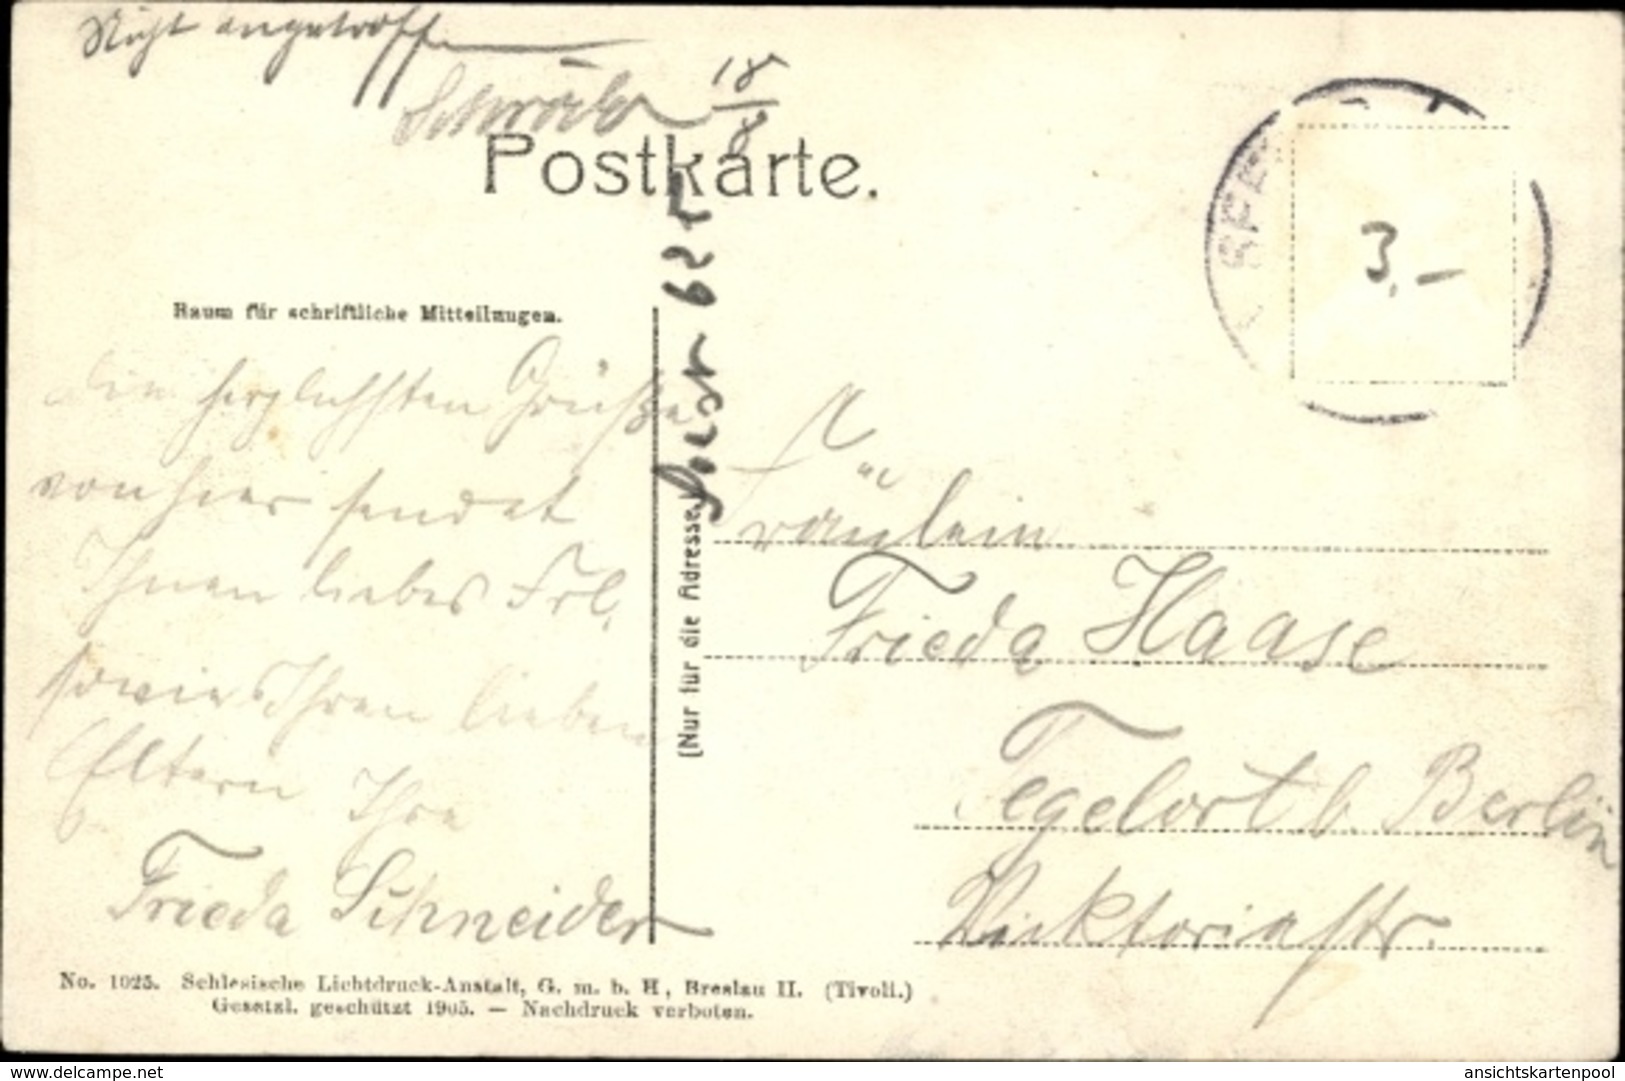 Nicht angetroffen
18/8
Postkarte.
3,-
Raum für schriftliche Mitteilungen.
Die herzlichsten Grüße
von hier sendet
Ihnen liebes Frl.
sowie Ihren lieben
Eltern Ihre
Frieda Schneider
(Nur für die Adresse.)
Fräulein
Frieda Haase
Tegelort b. Berlin
Vicktoriastr.
No. 1025. Schlesische Lichtdruck-Anstalt, G. m. b. H, Breslau II. (Tivoli.)
Gesetzl. geschützt 1905. — Nachdruck verboten.
www.delcampe.net
ansichtskartenpool